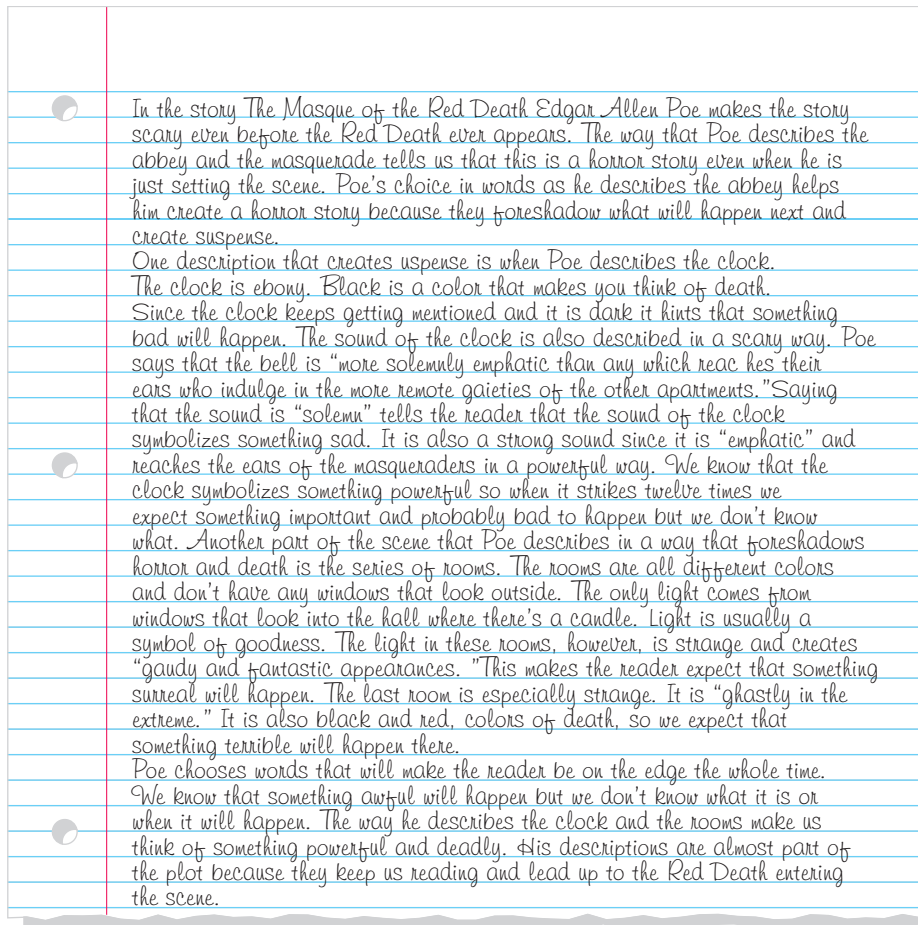 In the story The Masque of the Red Death Edgar Allen Poe makes the story
scary even before the Red Death ever appears. The way that Poe describes the
abbey and the masquerade tells us that this is a horror story even when he is
just setting the scene. Poe's choice in words as he describes the abbey helps
him create a horror story because they foreshadow what will happen next and
create suspense.
One description that creates uspense is when Poe describes the clock.
The clock is ebony. Black is a color that makes you think of death.
Since the clock keeps getting mentioned and it is dark it hints that something
bad will happen. The sound of the clock is also described in a scary way. Poe
says that the bell is “more solemnly emphatic than any which reac hes their
ears who indulge in the more remote gaieties of the other apartments.”Saying
that the sound is “solemn” tells the reader that the sound of the clock
symbolizes something sad. It is also a strong sound since it is “emphatic” and
reaches the ears of the masqueraders in a powerful way. We know that the
clock symbolizes something powerful so when it strikes twelve times we
expect something important and probably bad to happen but we don't know
what. Another part of the scene that Poe describes in a way that foreshadows
horror and death is the series of rooms. The rooms are all different colors
and don't have any windows that look outside. The only light comes from
windows that look into the hall where there's a candle. Light is usually a
symbol of goodness. The light in these rooms, however, is strange and creates
“gaudy and fantastic appearances. ”This makes the reader expect that something
surreal will happen. The last room is especially strange. It is “ghastly in the
extreme.” It is also black and red, colors of death, so we expect that
something terrible will happen there.
Poe chooses words that will make the reader be on the edge the whole time.
We know that something awful will happen but we don't know what it is or
when it will happen. The way he describes the clock and the rooms make us
think of something powerful and deadly. His descriptions are almost part of
the plot because they keep us reading and lead up to the Red Death entering
the scene.